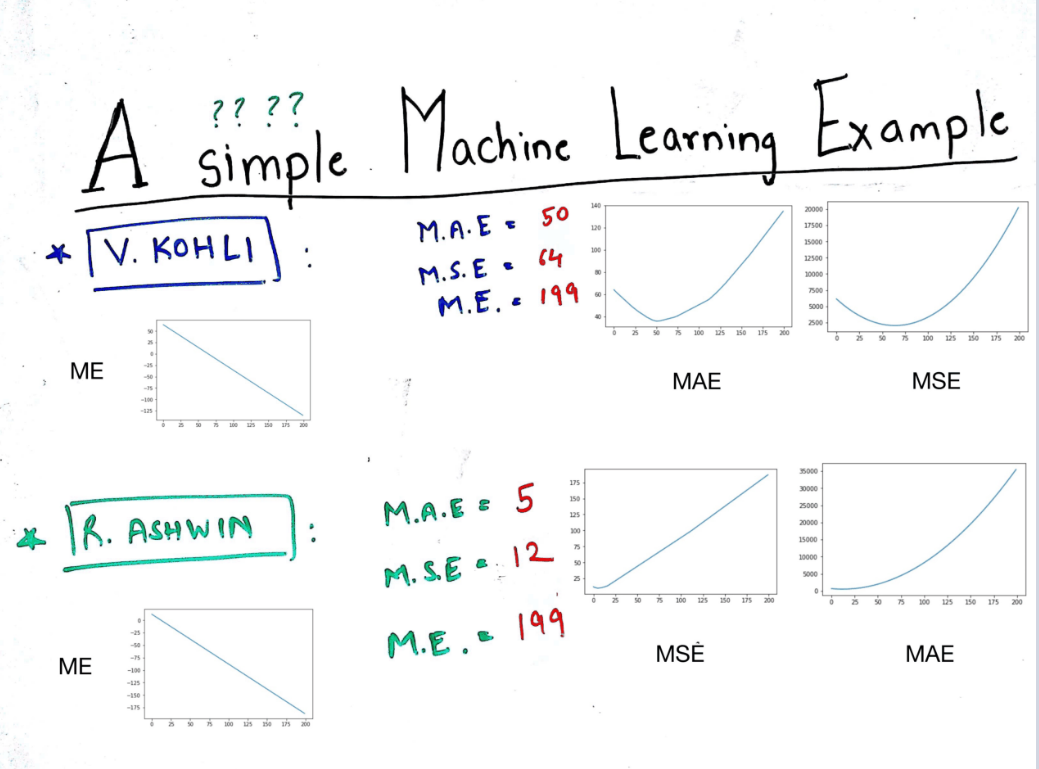 ? ? ? ?
A simple Machine Learning Example
★ V. KOHLI :
M.A.E = 50
M.S.E = 64
M.E. = 199
140
120
100
80
60
40
0 25 50 75 100 125 150 175 200
MAE
20000
17500
15000
12500
10000
7500
5000
2500
0 25 50 75 100 125 150 175 200
MSE
ME
50
25
0
−25
−50
−75
−100
−125
0 25 50 75 100 125 150 175 200
★ R. ASHWIN :
M.A.E = 5
M.S.E = 12
M.E. = 199
175
150
125
100
75
50
25
0 25 50 75 100 125 150 175 200
MSE
35000
30000
25000
20000
15000
10000
5000
0
0 25 50 75 100 125 150 175 200
MAE
ME
0
−25
−50
−75
−100
−125
−150
−175
0 25 50 75 100 125 150 175 200